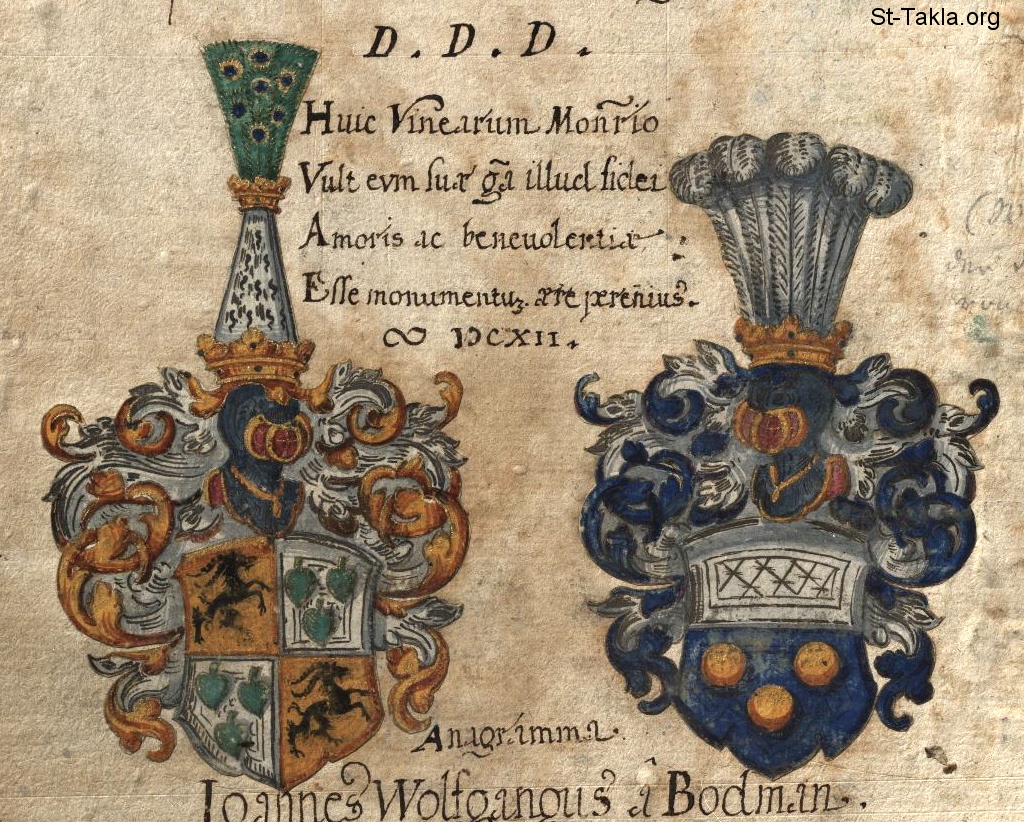 St-Takla.org
D. D. D.
Huic Vinearum Monr̃io
Vult eum suæ g̃a illud fidei
Amoris ac beneuolentiæ
Esse monumentuꝫ ære pereñius.
∞ DCXII.
Anagramma
Ioannes Wolfgangus â Bodman.